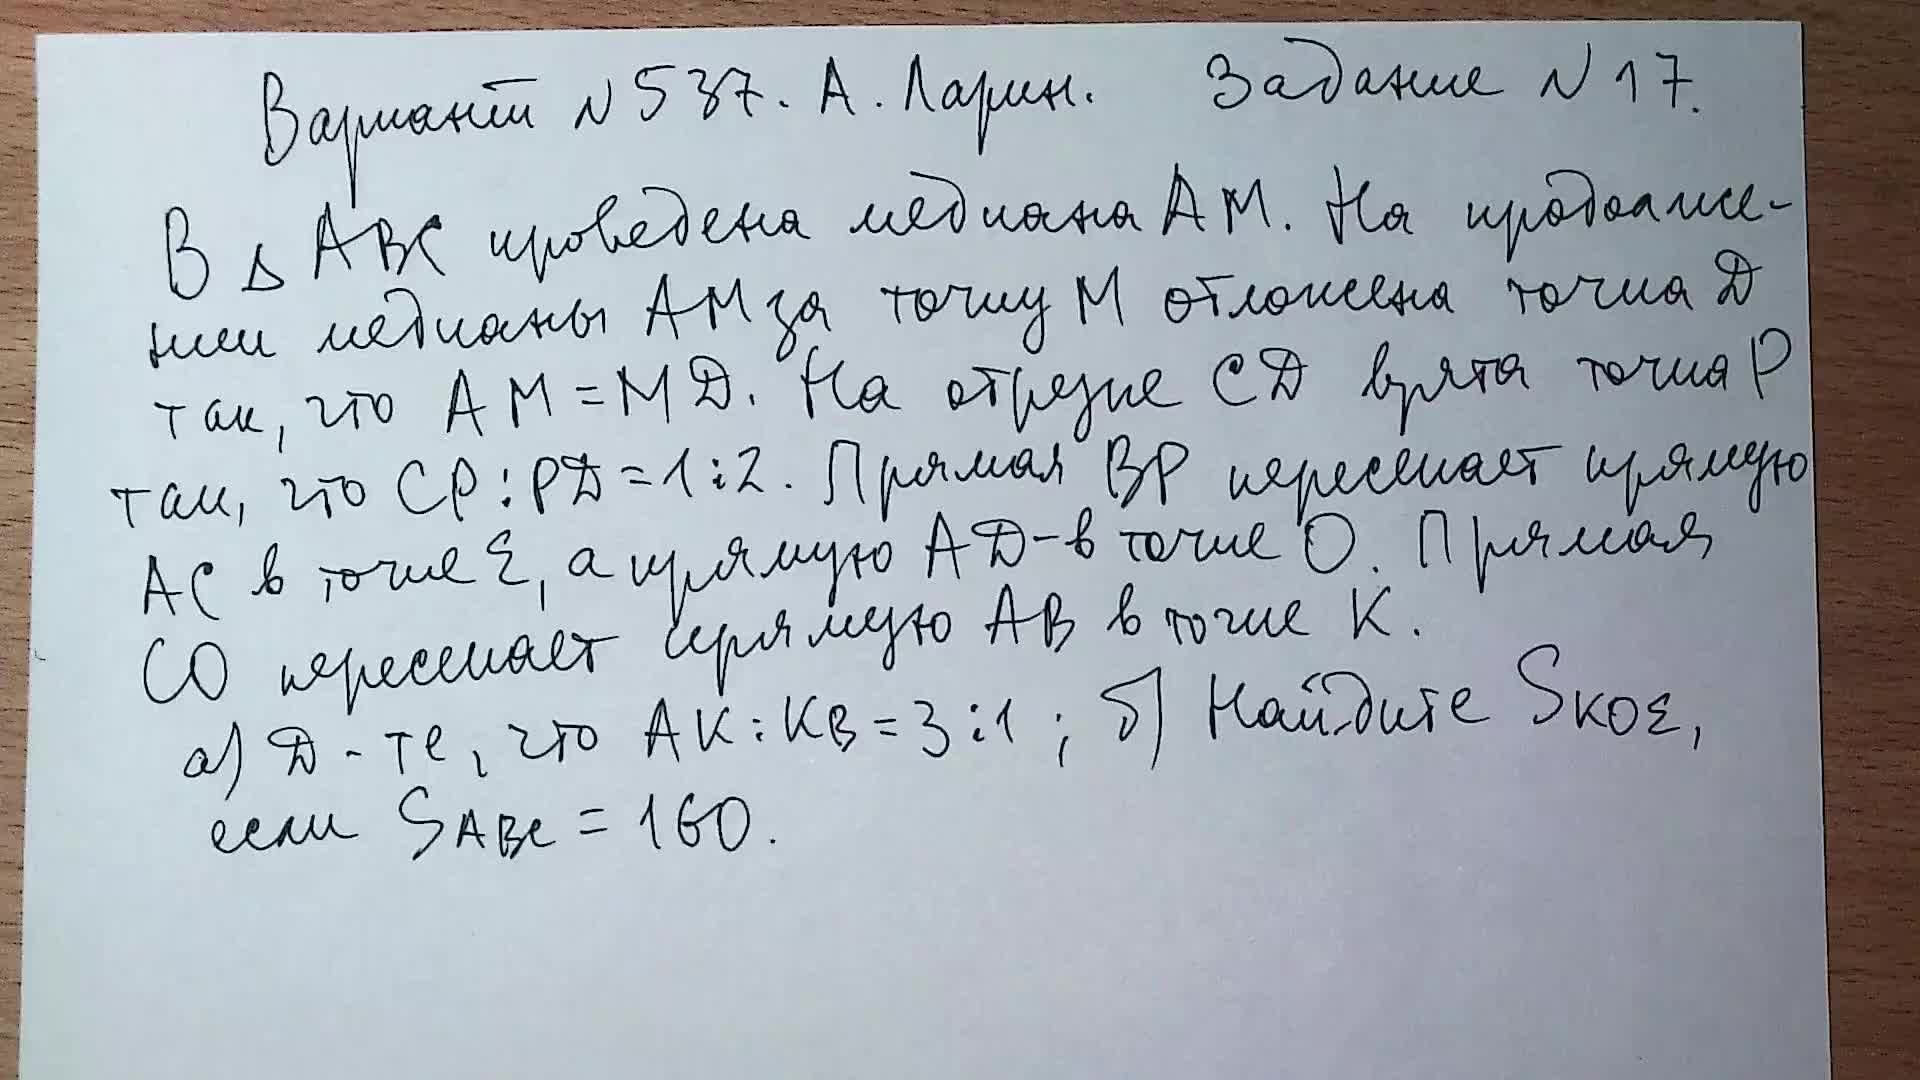 Вариант N 537. А. Ларин. Задание N 17.
В Δ ABC проведена медиана AM. На продолже-
нии медианы AM за точку M отложена точка D
так, что AM = MD. На отрезке CD взята точка P
так, что CP : PD = 1 : 2. Прямая BP пересекает прямую
AC в точке E, а прямую AD - в точке O. Прямая
CO пересекает прямую AB в точке K.
а) D-те, что AK : KB = 3 : 1 ; б) Найдите SKOE,
если SABC = 160.